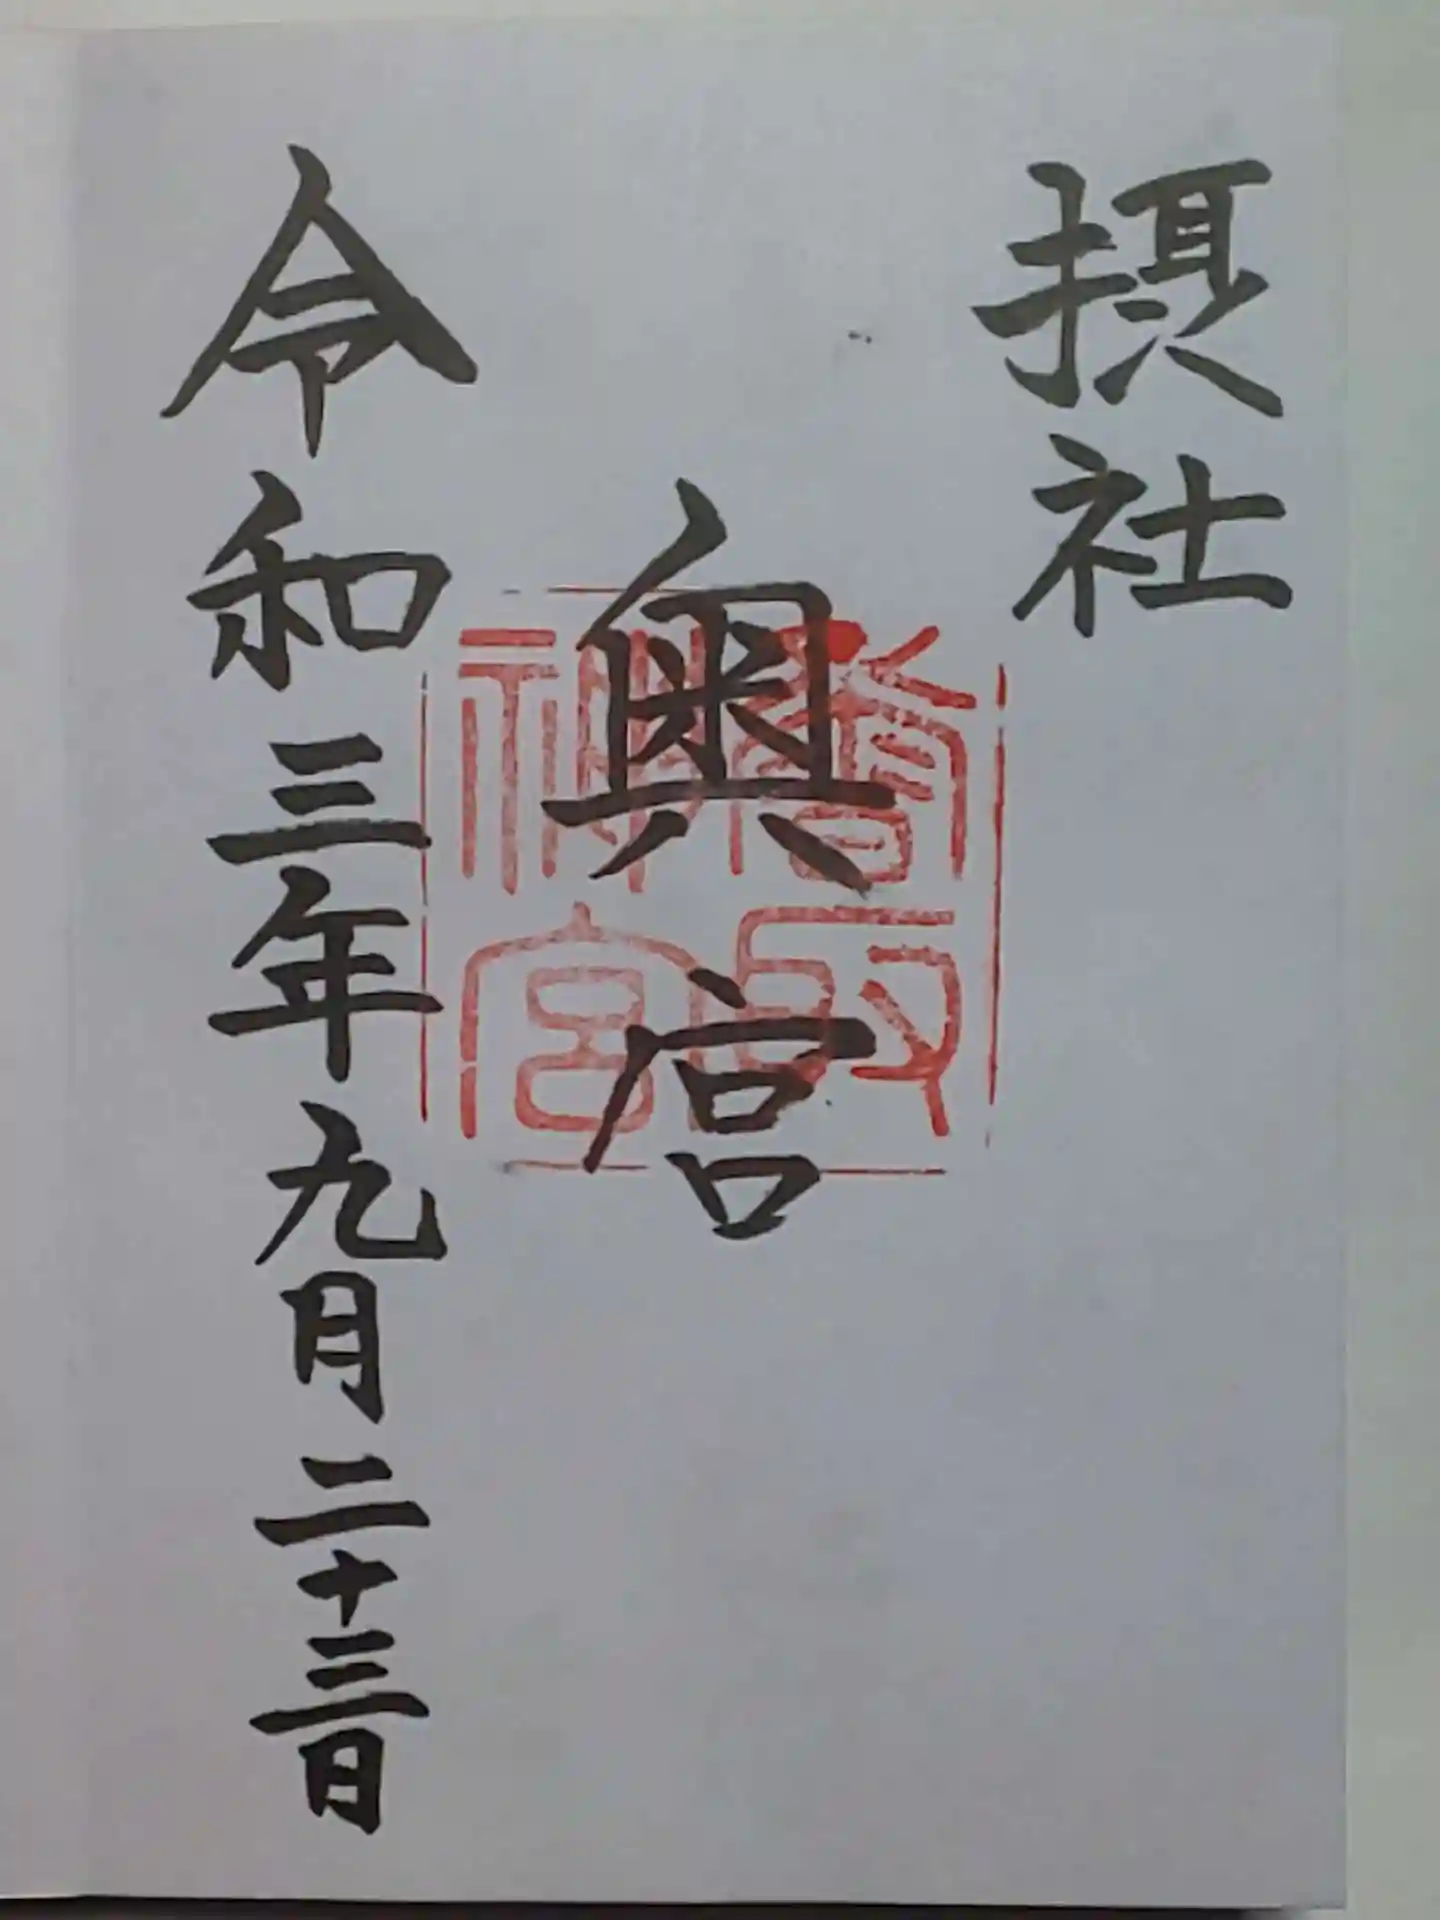 摂社
奥宮
令和三年九月二十三日
香取
神宮